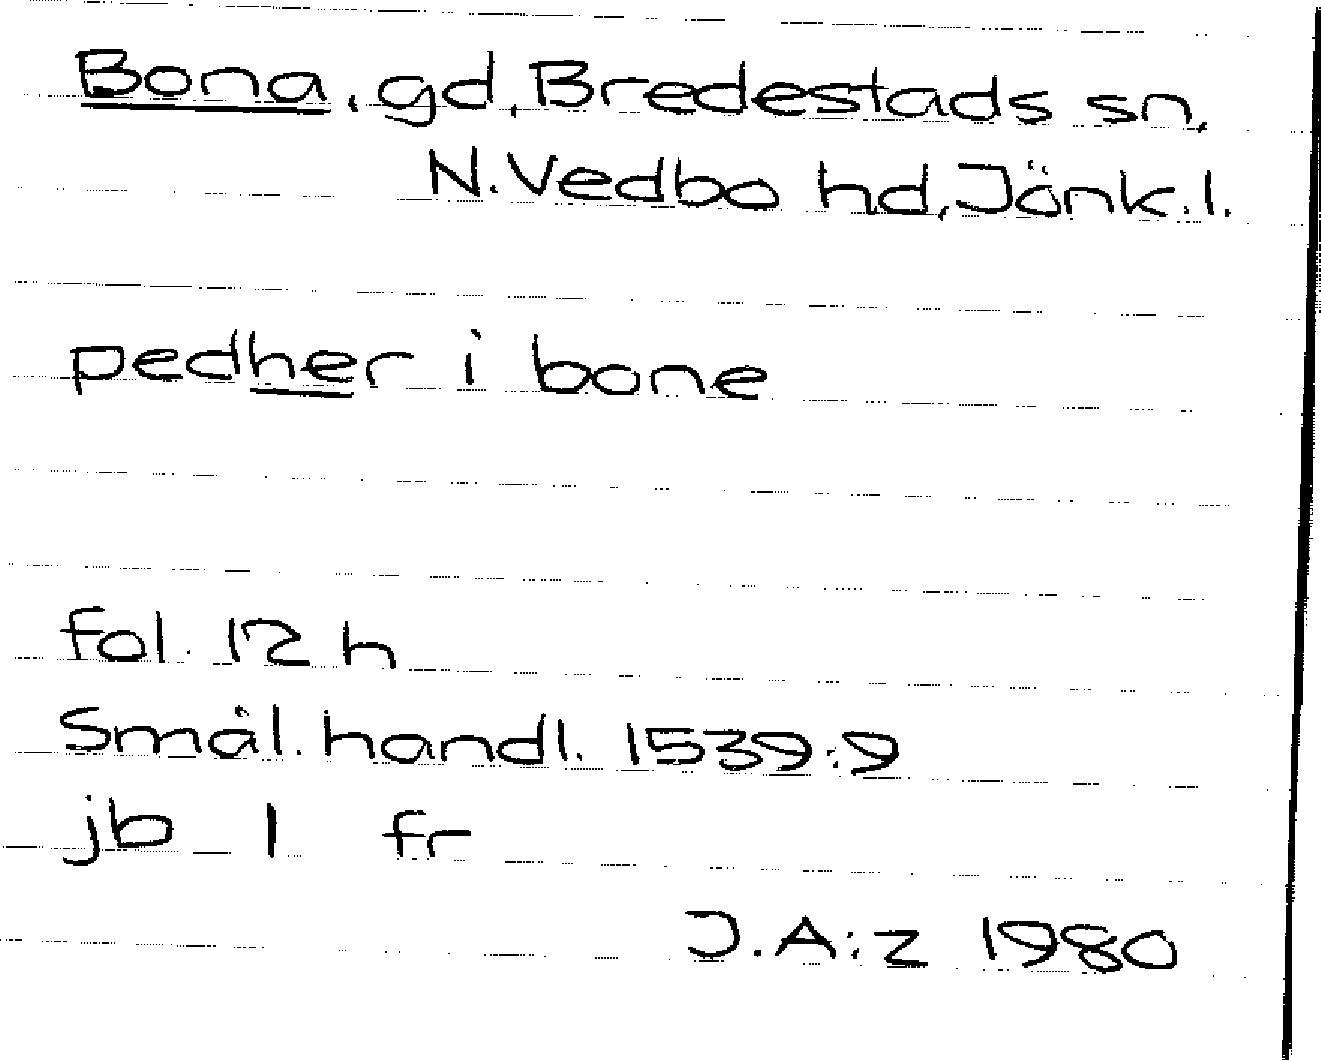 Bona, gd, Bredestads sn,
N. Vedbo hd, Jönk. l.
pedher i bone
fol. 12 h
Smål. handl. 1539:9
jb 1 fr
J.A:z 1980